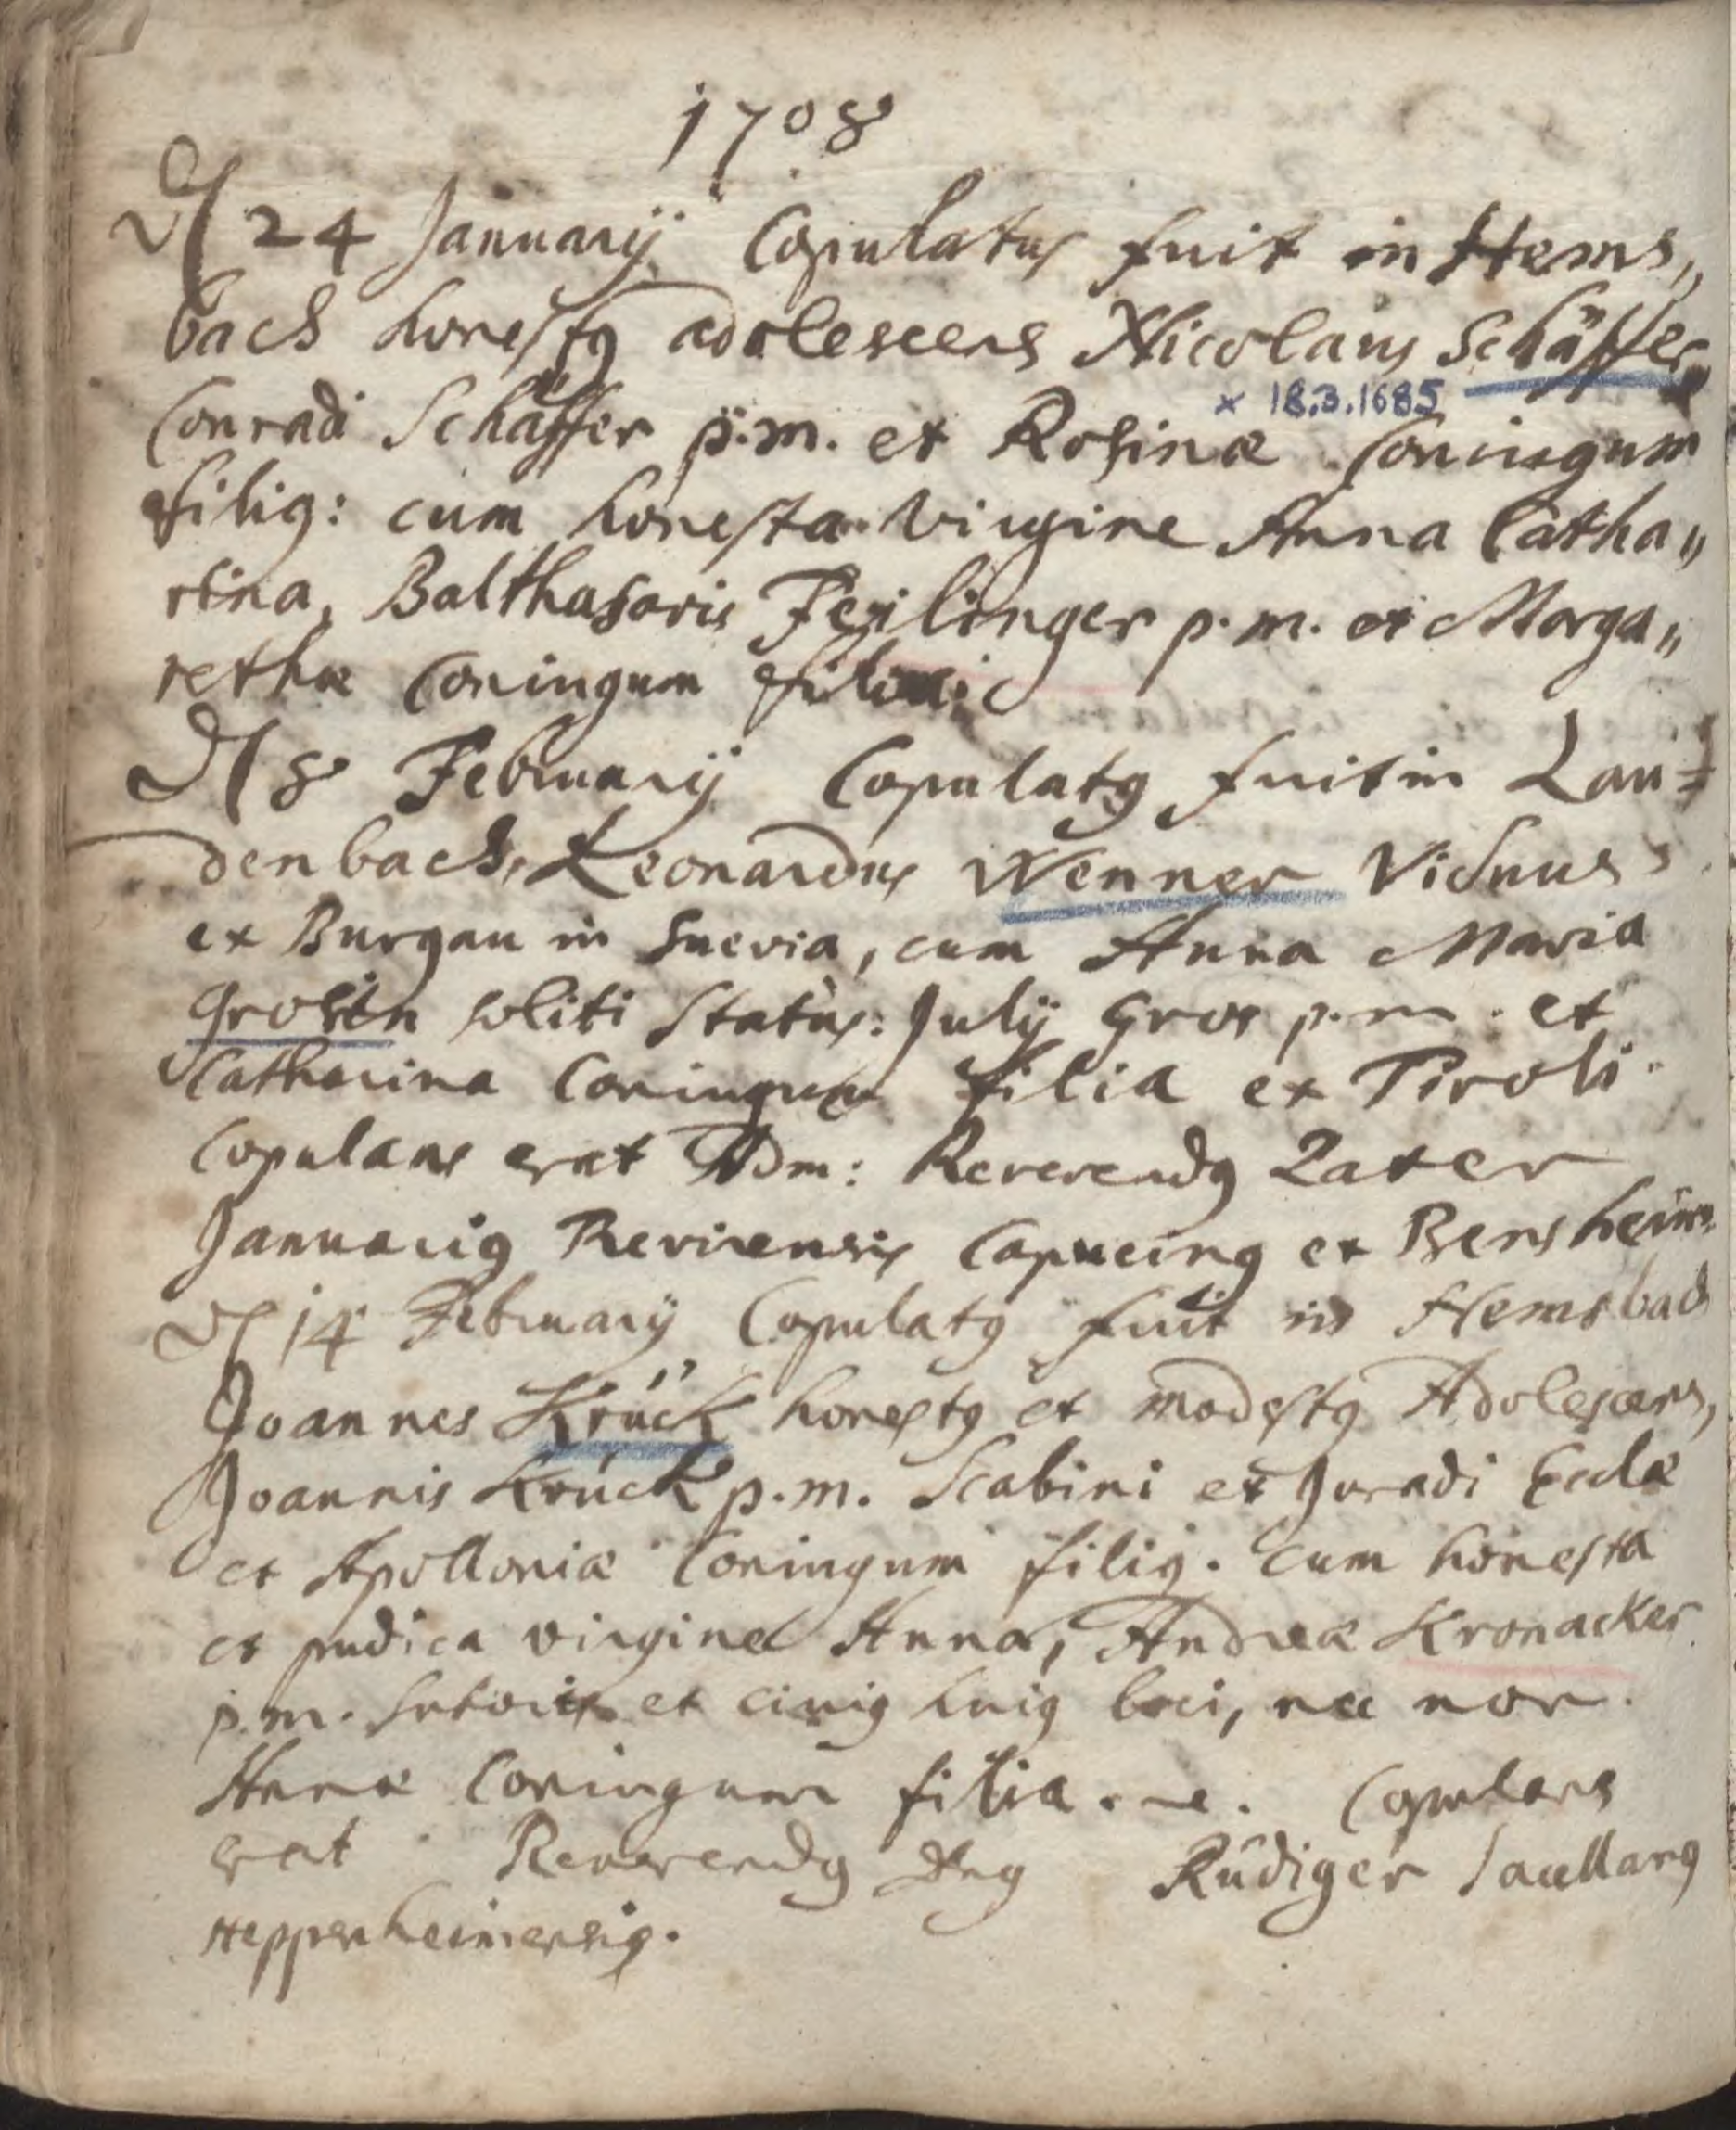 1708
D 24 Januarij Copulatus fuit in Hems„
bach honestq adolescens Nicolaus Schäffer
× 18.3.1685
Conradi Schäffer p.m. et Rosinæ Coniugum
filiq: cum honesta virgine Anna Catha„
rina, Balthasaris Feylinger p.m. et Marga„
rethæ Coniugum filia:
D 8 February Copulatq fuit in Lau=
denbach, Leonardus Wenner Viduus
ex Burgau in Suevia, cum Anna Maria
Grosin soliti Status: Julij Gros p.m. et
Catharina Coniugum filia ex Tiroli.
Copulans erat Adm: Reverendq Pater
Januariq Capucinq ex Bensheim
D 14 February Copulatq fuit in Hemsbach
Joannes Krück honestq et modestq Adolescens,
Joannis Krück p.m. Scabini et Juradi Eccłæ
et Apolloniæ Coniugum filiq. cum honesta
et pudica virgine Anna, Andreæ Kronacker
p.m. Sutoris et civiq huiq loci, nec non
Annæ Coniugum filia. Copulans
erat Reverendq Dnq Rüdiger Sacellanq
Heppenheimensiq.